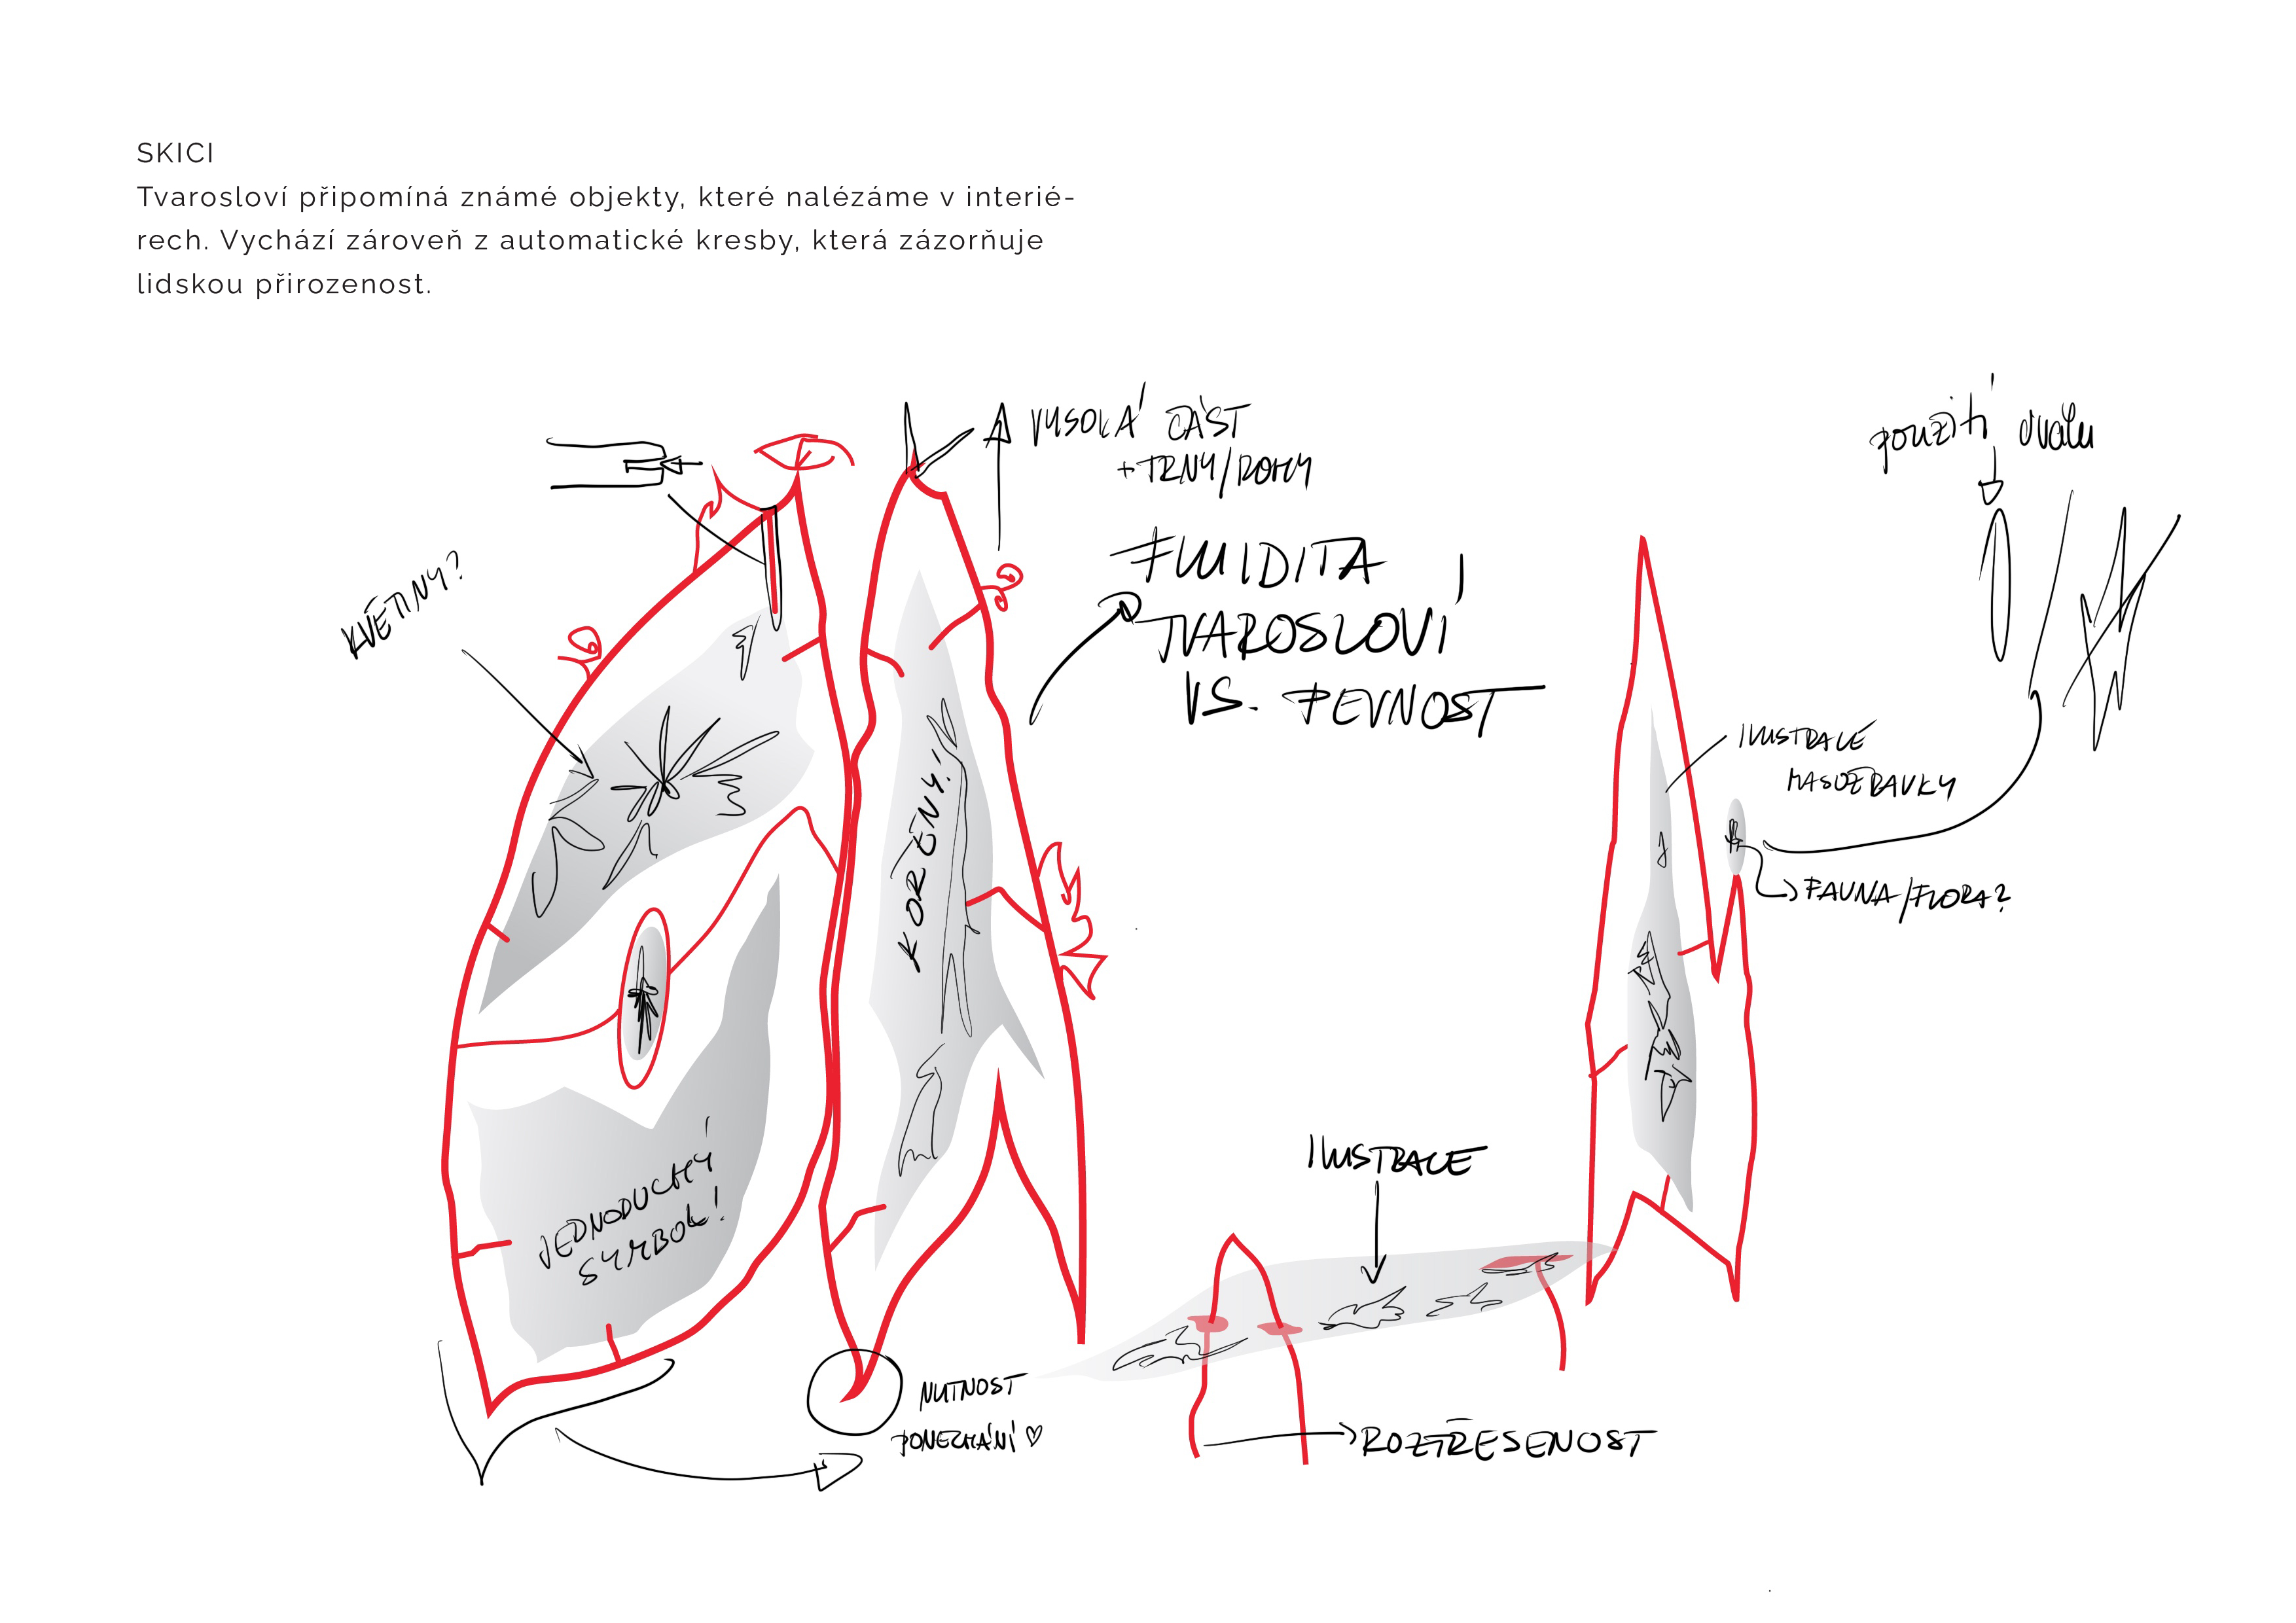 SKICI
Tvarosloví připomíná známé objekty, které nalézáme v interié-
rech. Vychází zároveň z automatické kresby, která zázorňuje
lidskou přirozenost.
VYSOKÁ ČÁST
+TRNY/ROHY
použití oválu
FLUIDITA
TVAROSLOVÍ
VS. PEVNOST
KVĚTINY?
ILUSTRACE
MASOŽRAVKY
KOŘENY!
FAUNA/FLORA?
JEDNODUCHÝ
SYMBOL!
ILUSTRACE
NUTNOST
PONECHÁNÍ ♡
ROZTŘESENOST